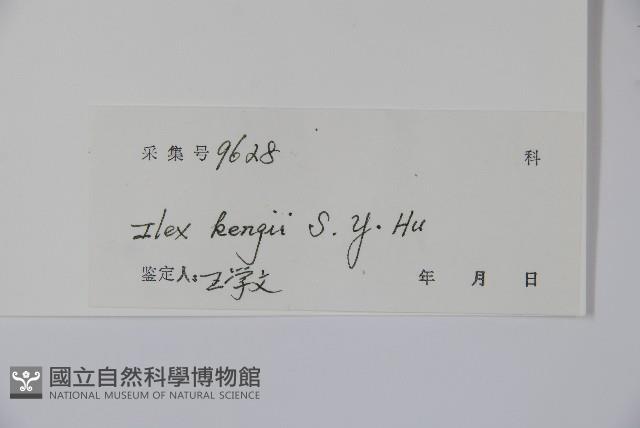 采集号 9628 科
Ilex kengii S. Y. Hu
鉴定人: 王学文 年 月 日
國立自然科學博物館
NATIONAL MUSEUM OF NATURAL SCIENCE